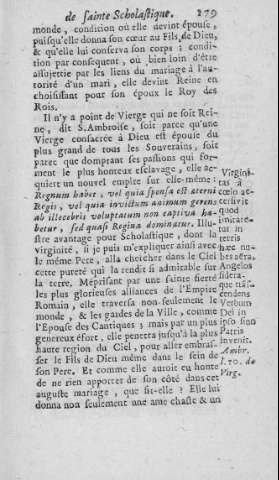 de sainte Scholastique. 179
monde, condition où elle devint épouse,
puisqu'elle donna son cœur au Fils de Dieu,
& qu'elle lui conserva son corps : condi-
tion par consequent, où bien loin d'être
assujettie par les liens du mariage à l'au-
torité d'un mari, elle devint Reine en
choisissant pour son époux le Roy des
Rois.
Il n'y a point de Vierge qui ne soit Rei-
ne, dit S. Ambroise, soit parce qu'une
Vierge consacrée à Dieu est épouse du
plus grand de tous les Souverains, soit
parce que domptant ses passions qui for-
ment le plus honteux esclavage, elle ac-
quiert un nouvel empire sur elle-même :
Regnum habet, vel quia sponsa est æterni
Regis, vel quia invictum animum gerens
ab illecebris voluptatum non captiva ha-
betur, sed quasi Regina dominatur. Illu-
stre avantage pour Scholastique, dont la
virginité, si je puis m'expliquer ainsi avec
le même Pere, alla chercher dans le Ciel
cette pureté qui la rendit si admirable sur
la terre. Méprisant par une sainte fierté
les plus glorieuses alliances de l'Empire
Romain, elle traversa non-seulement le
monde, & les gardes de la Ville, comme
l'Epouse des Cantiques ; mais par un plus
genereux éfort, elle penetra jusqu'à la plus
haute region du Ciel, pour aller embras-
ser le Fils de Dieu même dans le sein de
son Pere. Et comme elle auroit eu honte
de ne rien apporter de son côté dans cet
auguste mariage, que fit-elle ? Elle lui
donna non seulement une ame chaste & un
Virgini-
tas à
cœlo ac-
cersivit
quod
imitare-
tur in
terris
hæc nu-
bes aëra,
Angelos
sidera-
que trās-
cendens
Verbum
Dei in
ipso sinu
Patris
invenit.
Ambr.
l. 10. de
Virg.